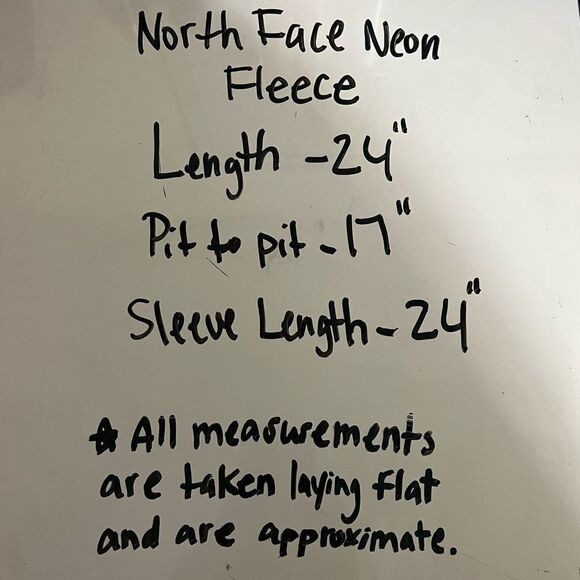 North Face Neon
Fleece
Length - 24"
Pit to pit - 17"
Sleeve Length - 24"
☆ All measurements
are taken laying flat
and are approximate.